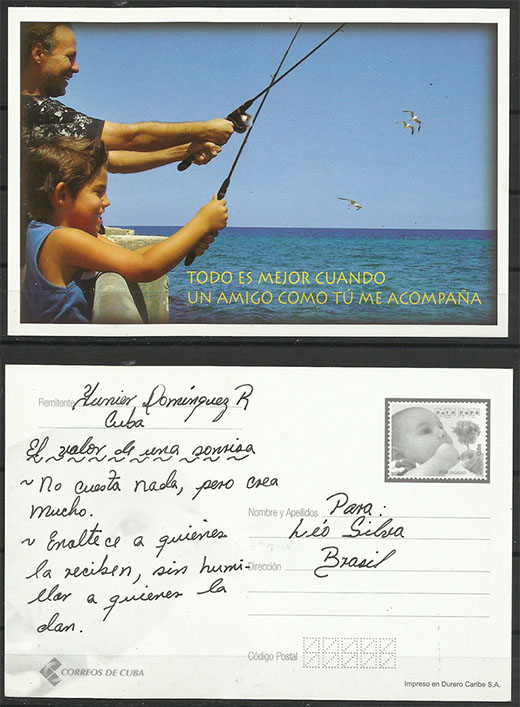 TODO ES MEJOR CUANDO
UN AMIGO COMO TÚ ME ACOMPAÑA
Remitente Yunier Domínguez R
Cuba
El valor de una sonrisa
~ No cuesta nada, pero crea
mucho.
~ Enaltece a quienes
la reciben, sin humi-
llar a quienes la
dan.
Para Papá
Cuba
Nombre y Apellidos Para:
Léo Silva
Dirección Brasil
Código Postal
CORREOS DE CUBA
Impreso en Durero Caribe S.A.